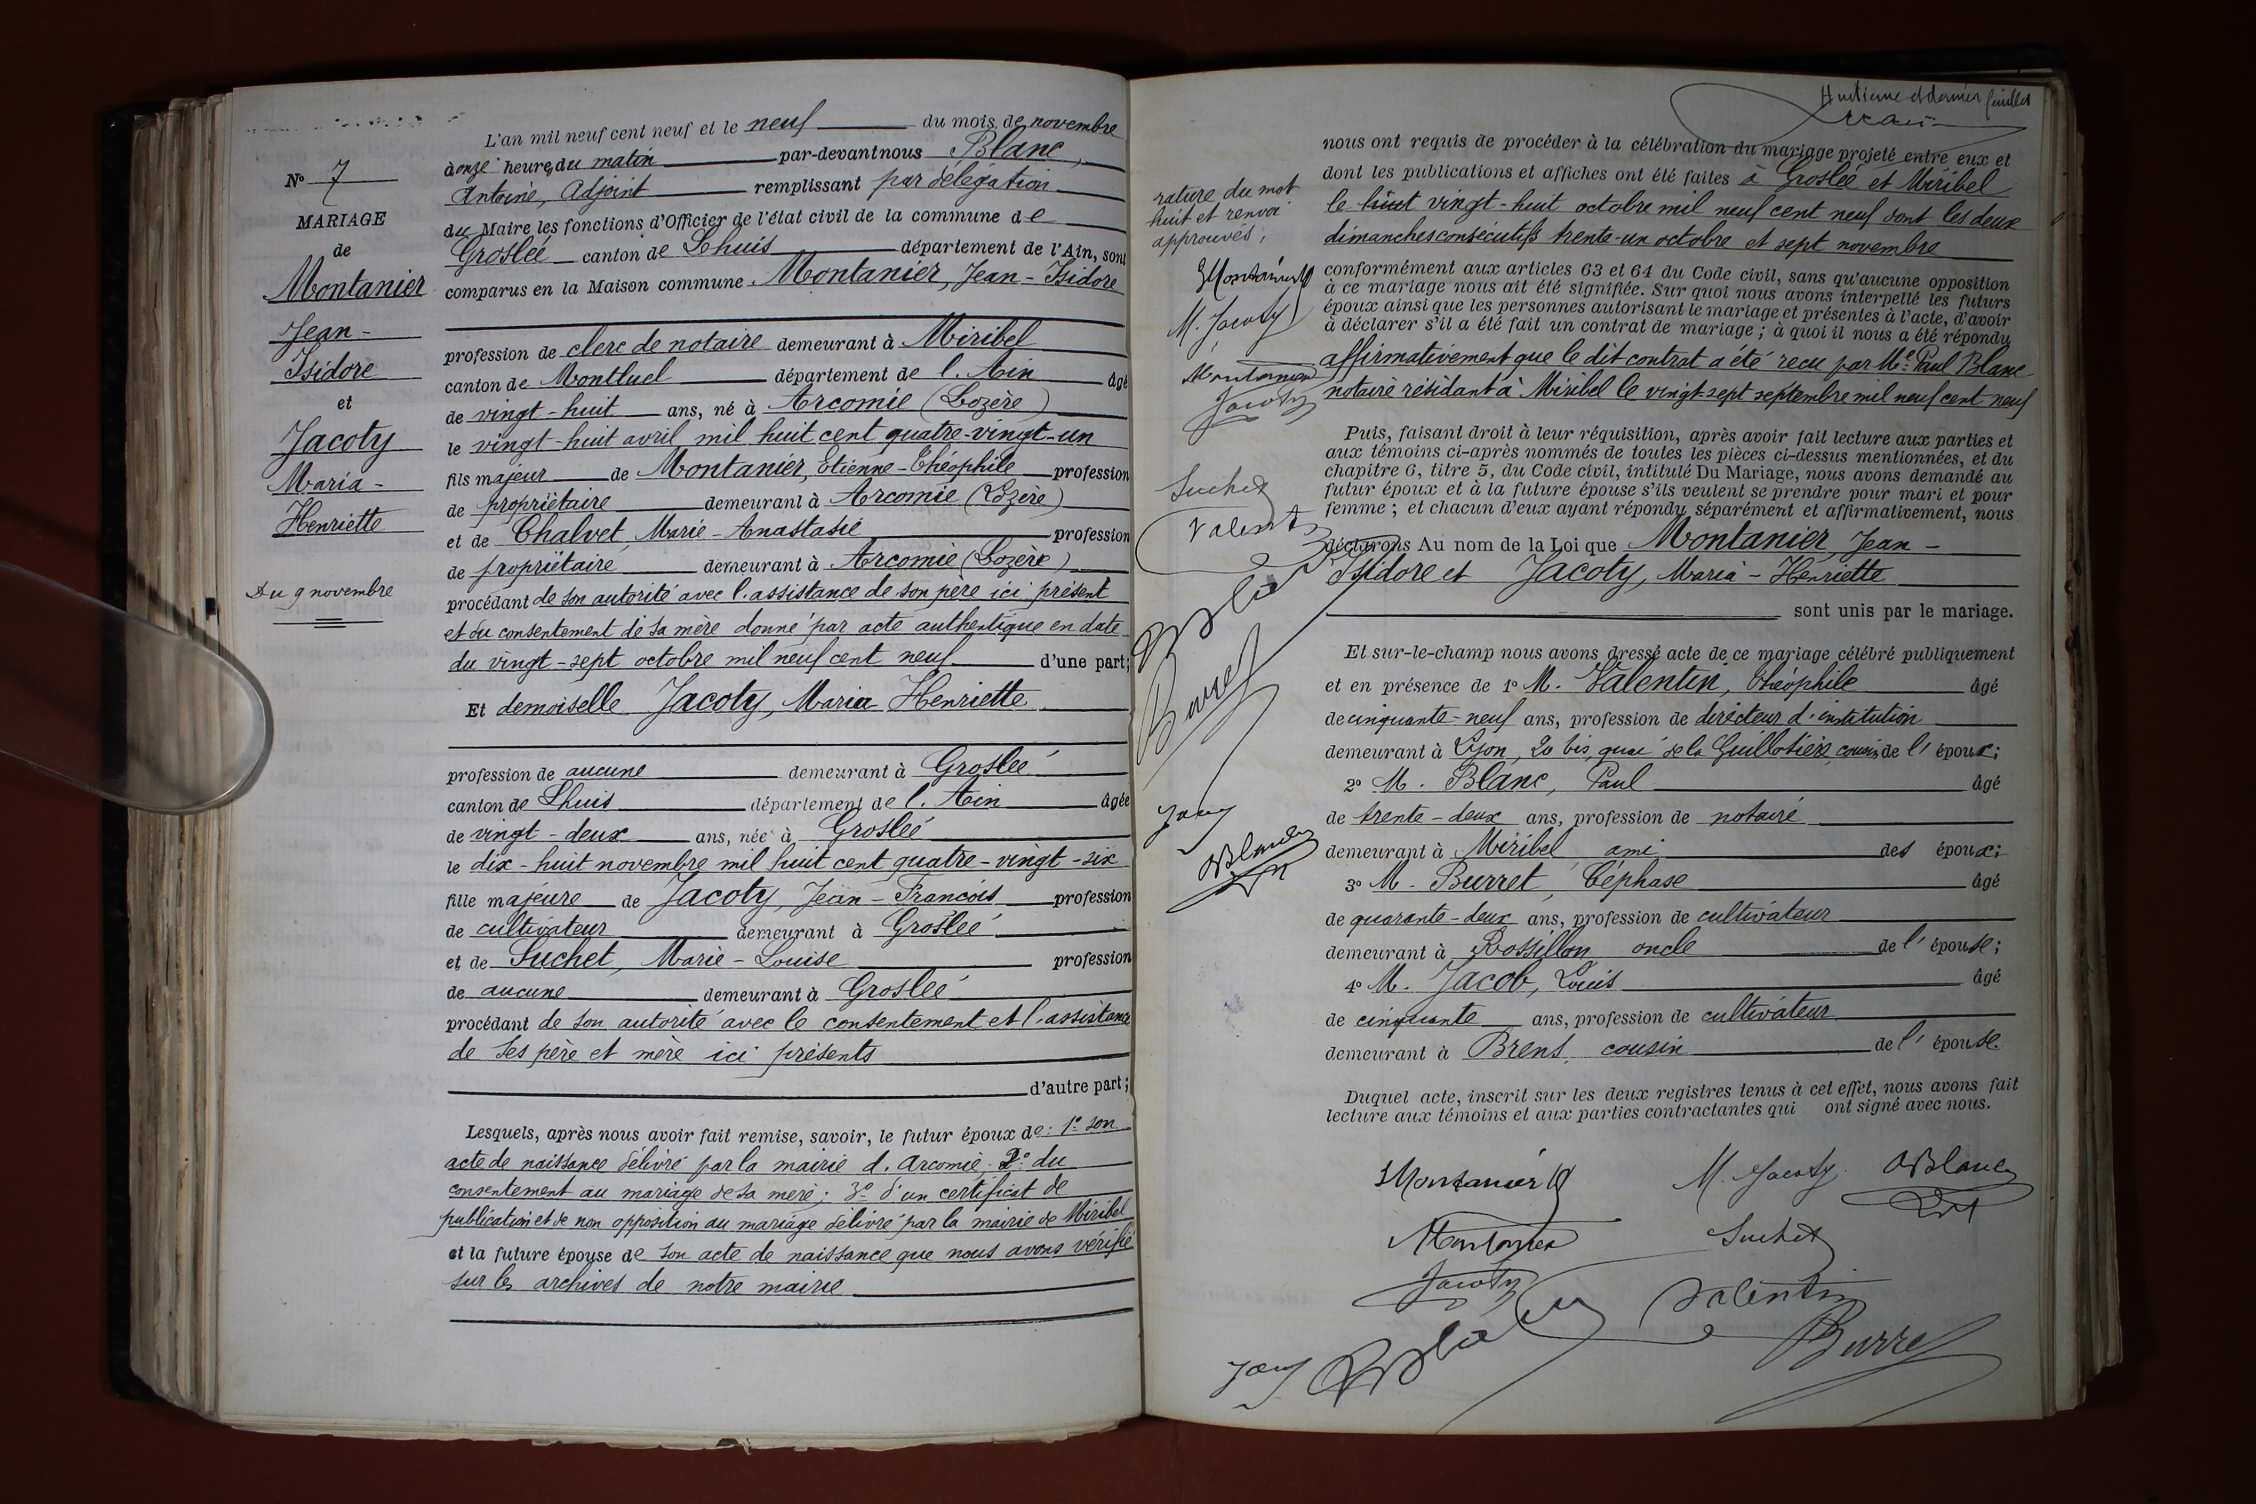 N° 7
MARIAGE
de
Montanier
Jean -
Isidore
et
Jacoty
Maria -
Henriette
Du 9 novembre
L'an mil neuf cent neuf et le neuf du mois de novembre
à onze heures du matin par-devant nous Blanc,
Antoine, Adjoint remplissant par délégation
du Maire les fonctions d'Officier de l'état civil de la commune de
Groslée canton de Lhuis département de l'Ain, sont
comparus en la Maison commune Montanier, Jean - Isidore
profession de clerc de notaire demeurant à Miribel
canton de Montluel département de l'Ain âgé
de vingt - huit ans, né à Arcomie (Lozère)
le vingt-huit avril mil huit cent quatre-vingt-un
fils majeur de Montanier, Etienne - Théophile profession
de propriétaire demeurant à Arcomie (Lozère)
et de Chalvet, Marie - Anastasie profession
de propriétaire demeurant à Arcomie (Lozère)
procédant de son autorité avec l'assistance de son père ici présent
et du consentement de sa mère donné par acte authentique en date
du vingt-sept octobre mil neuf cent neuf d'une part;
Et demoiselle Jacoty, Maria Henriette
profession de aucune demeurant à Groslée
canton de Lhuis département de l'Ain âgée
de vingt - deux ans, née à Groslée
le dix - huit novembre mil huit cent quatre - vingt - six
fille majeure de Jacoty, Jean - François profession
de cultivateur demeurant à Groslée
et de Suchet, Marie - Louise profession
de aucune demeurant à Groslée
procédant de son autorité avec le consentement et l'assistance
de ses père et mère ici présents
d'autre part;
Lesquels, après nous avoir fait remise, savoir, le futur époux de: 1° son
acte de naissance délivré par la mairie d'Arcomie; 2° du
consentement au mariage de sa mère; 3° d'un certificat de
publication et de non opposition au mariage délivré par la mairie de Miribel
et la future épouse de son acte de naissance que nous avons vérifié
sur les archives de notre mairie
Huitième et dernier feuillet
nous ont requis de procéder à la célébration du mariage projeté entre eux et
dont les publications et affiches ont été faites à Groslée et Miribel
le huit vingt-huit octobre mil neuf cent neuf sont les deux
dimanches consécutifs trente-un octobre et sept novembre
conformément aux articles 63 et 64 du Code civil, sans qu'aucune opposition
à ce mariage nous ait été signifiée. Sur quoi nous avons interpellé les futurs
époux ainsi que les personnes autorisant le mariage et présentes à l'acte, d'avoir
à déclarer s'il a été fait un contrat de mariage; à quoi il nous a été répondu
affirmativement que le dit contrat a été reçu par Me Paul Blanc
notaire résidant à Miribel le vingt-sept septembre mil neuf cent neuf
Puis, faisant droit à leur réquisition, après avoir fait lecture aux parties et
aux témoins ci-après nommés de toutes les pièces ci-dessus mentionnées, et du
chapitre 6, titre 5, du Code civil, intitulé Du Mariage, nous avons demandé au
futur époux et à la future épouse s'ils veulent se prendre pour mari et pour
femme; et chacun d'eux ayant répondu séparément et affirmativement, nous
déclarons Au nom de la Loi que Montanier, Jean -
Isidore et Jacoty, Maria - Henriette
sont unis par le mariage.
Et sur-le-champ nous avons dressé acte de ce mariage célébré publiquement
et en présence de 1° M. Valentin, Théophile âgé
de cinquante - neuf ans, profession de directeur d'institution
demeurant à Lyon, 20 bis, quai de la Guillotière, cousin de l'époux;
2° M. Blanc, Paul âgé
de trente - deux ans, profession de notaire
demeurant à Miribel ami des époux;
3° M. Burret, Céphase âgé
de quarante - deux ans, profession de cultivateur
demeurant à Rossillon oncle de l'épouse;
4° M. Jacob, Louis âgé
de cinquante ans, profession de cultivateur
demeurant à Brens cousin de l'épouse.
Duquel acte, inscrit sur les deux registres tenus à cet effet, nous avons fait
lecture aux témoins et aux parties contractantes qui ont signé avec nous.
rature du mot
huit et renvoi
approuvés;
JMontanier
M. Jacoty
Montanier
Jacoty
Suchet
Valentin
Blanc
Burret
ABlanc
JMontanier M. Jacoty ABlanc
Montanier Suchet
Jacoty Valentin
Blanc Burret